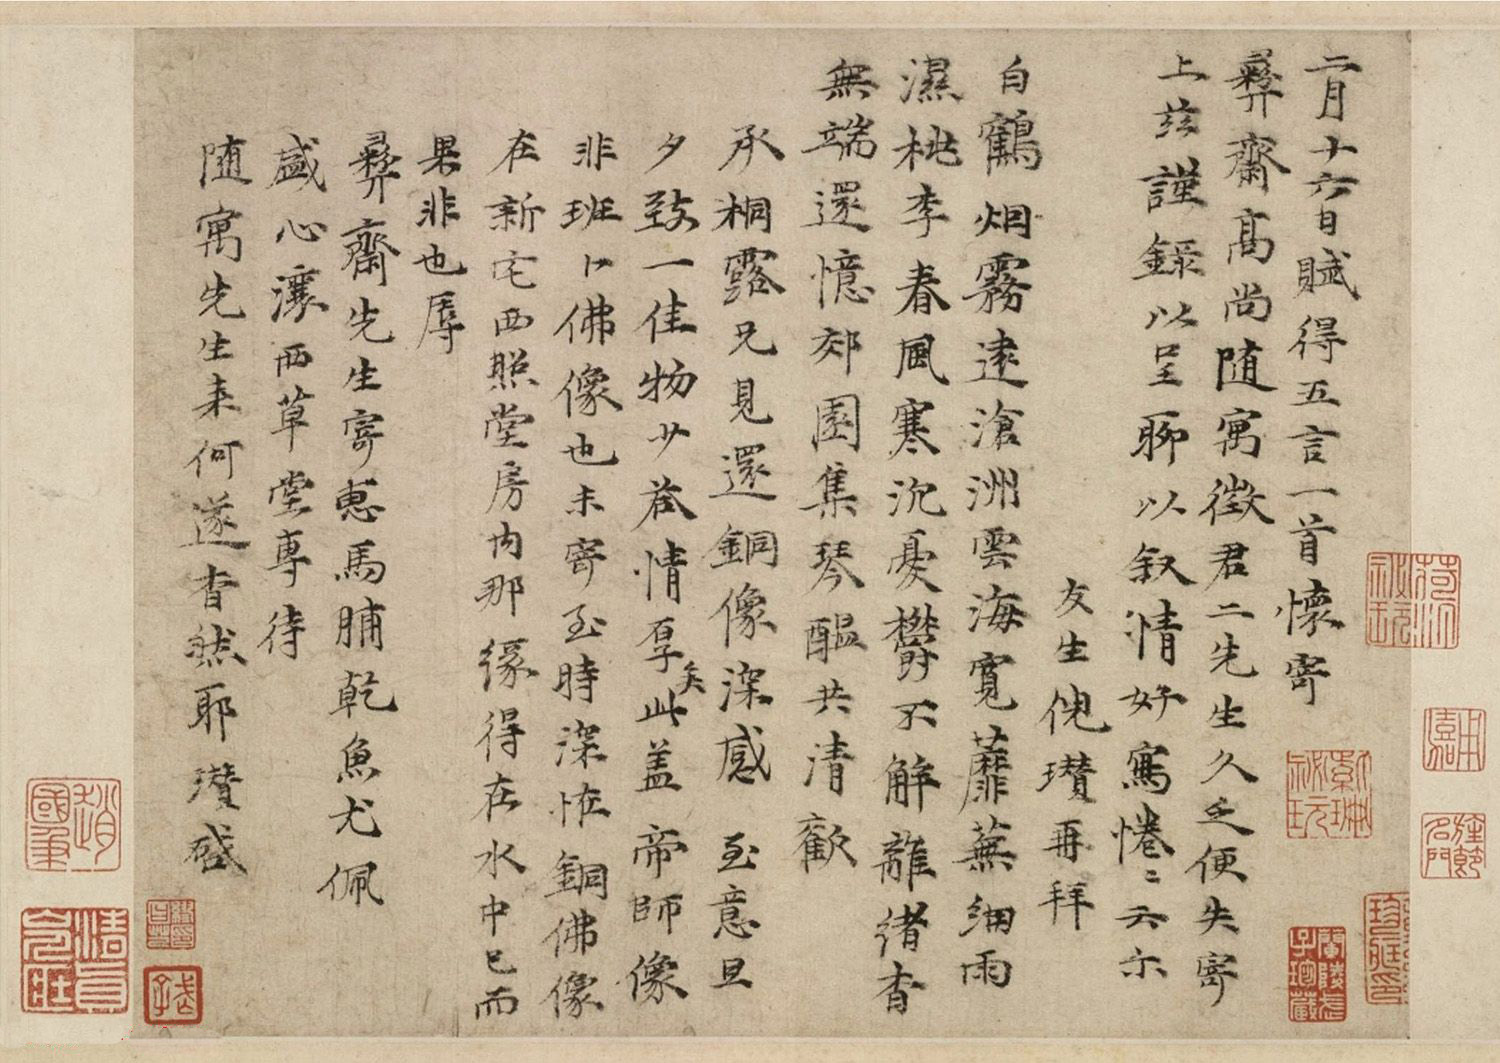 二月十六日賦得五言一首懷寄
彝齋高尚随寓徵君二先生久乏便失寄
上兹謹録以呈聊以叙情好寫惓〻云尓
友生倪瓚再拜
白鶴烟霧逺滄洲雲海寛蘼蕪細雨
濕桃李春風寒沉憂欝不解離緒杳
無端還憶郊園集琴醖共清歡
承桐露兄見還銅像深感 至意旦
夕致一佳物少荅情厚矣此盖帝師像
非班卜佛像也未寄至時深怪銅佛像
在新宅西照堂房内那緣得在水中已而
果非也辱
彝齋先生寄惠馬脯乾魚尤佩
盛心瀼西草堂専待
随寓先生来何遂杳然耶瓚啓